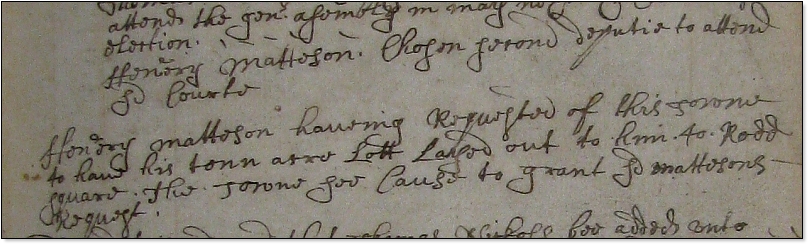 attend the gen: asembly in may
election.
Henery Matteson. Chosen second deputie to attend
sd Courte
Henery matteson haveing Requested of this towne
to have his tenn acre Lott Layed out to him 40. Rodd
square. The towne see Cause to grant sd mattesons
Request.
bee added unto